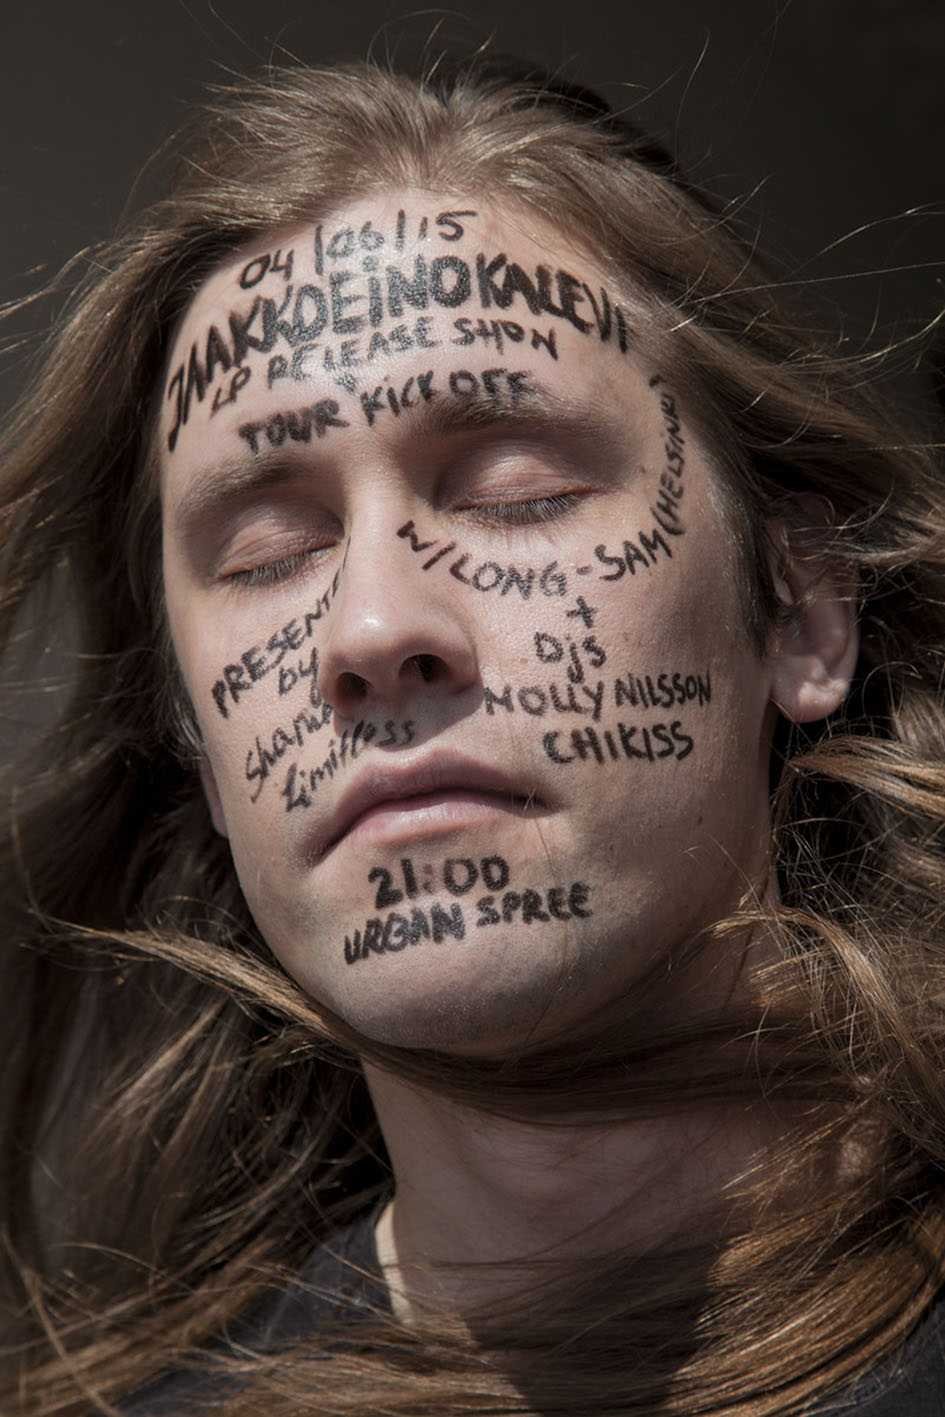 04/06/15
JAAKKOEINOKALEVI
LP RELEASE SHOW
TOUR KICK OFF
W/LONG-SAM (HELSINKI)
+
Djs
MOLLY NILSSON
CHIKISS
PRESENTED
by
Shameless
Limitless
21:00
URBAN SPREE